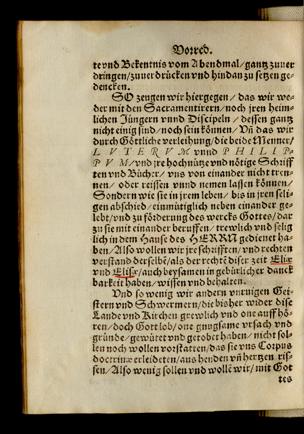 Vorred.
te vnd Bekentnis vom Abendmal / gantz zuuer
dringen / zuuerdrücken vnd hindan zu setzen ge-
dencken.
SO zeugen wir hiergegen / das wir we-
der mit den Sacramentirern / noch jren heim-
lichen Jüngern vnnd Discipeln / dessen gantz
nicht einig sind / noch sein können / Vñ das wir
durch Göttliche verleihung / die beide Menner /
LVTERVM vnnd PHILIP-
PVM / vnd jre hochnütze vnd nötige Schriff
ten vnd Bücher / vns von einander nicht tren-
nen / oder reissen vnnd nemen lassen können /
Sondern wie sie in jrem leben / bis in jren seli-
gen abschied / einmütiglich neben einander ge-
lebt / vnd zu förderung des wercks Gottes / dar
zu sie mit einander beruffen / trewlich vnd selig
lich in dem Hause des HERRN gedienet ha-
ben / Also wollen wir jre schrifften / vnd rechten
verstand derselbe / als der recht dieser zeit Eliæ
vnd Elisæ / auch beysamen in gebürlicher danck
barkeit haben / wissen vnd behalten.
Vnd so wenig wir andern vnrugigen Gei-
stern vnd Schwermern / die bisher wider dise
Lande vnd Kirchen grewlich vnd one auff hö-
ren / doch Gott lob / one gnugsame vrsach vnd
gründe / gewütet vnd getobet haben / nicht sol-
len noch wollen vorstatten / das sie vns Corpus
doctrinæ erleideten / aus henden vñ hertzen ris-
sen / Also wenig sollen vnd wollē wir / mit Got
tes